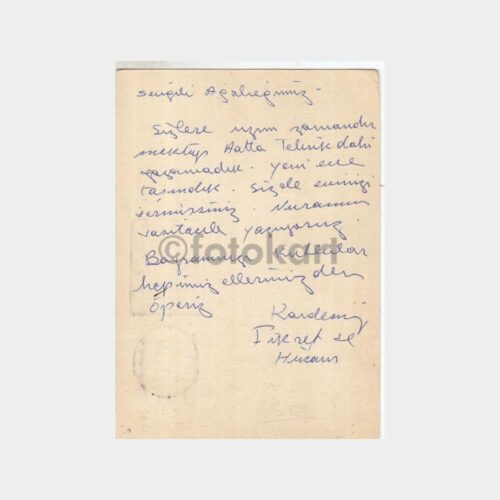 Sevgili Ağabeğimiz -
Sizlere uzun zamandır
mektup Hatta Tebrik dahi
yazamadık. Yeni eve
taşındık. Sizde evinizi
vermişsiniz. Nuranın
vasıtasile yazıyoruz.
Bayramınızı Kutlular
hepimiz ellerinizden
Öperiz
Kardeşiniz
Fikret ve
©fotokart